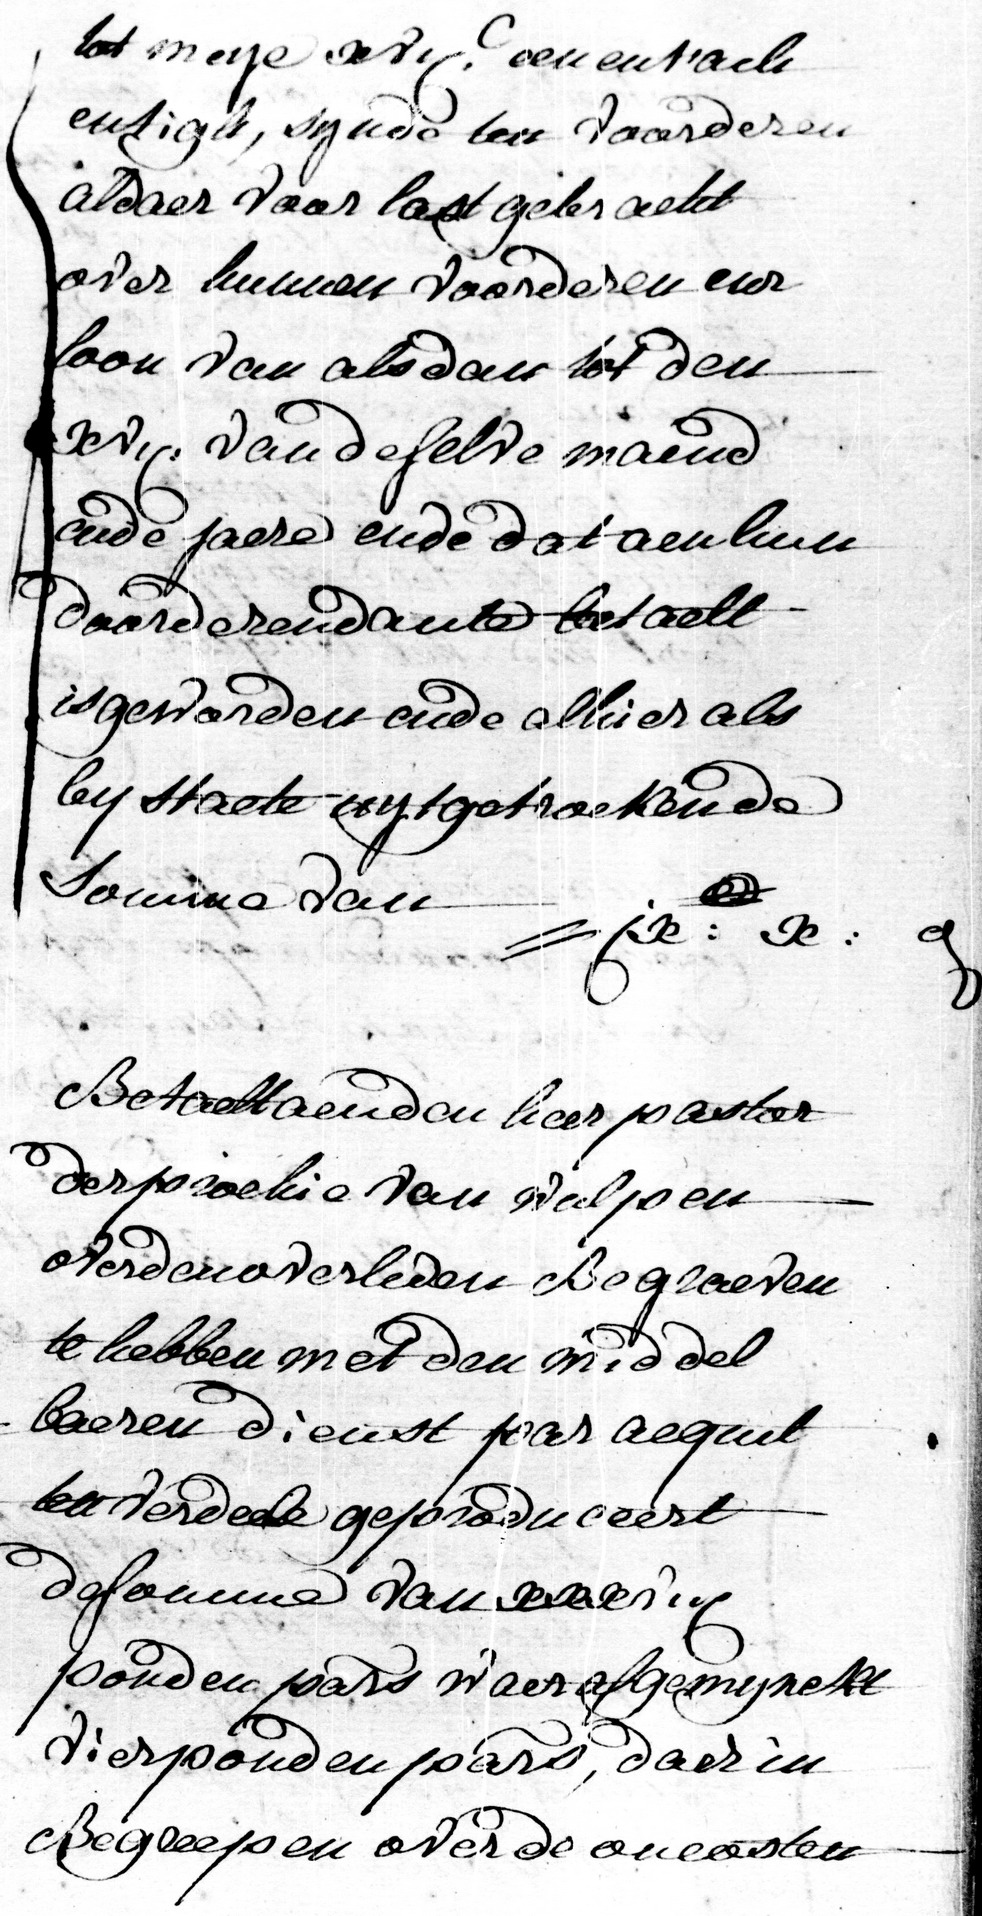 tot meye xvij.C eenentach
entigh, synde ten voorderen
aldaer voor last gebracht
over hunnen voorderen eur
loon van alsdan tot den
xvij. van de selve maend
ende jaere ende dat aen hun
voorderen dante betaelt
is geworden ende alhier als
by staete uytgetrocken de
Somme van
jx : x : g
Betaelt aen den heer pastor
der prochie van wulpen
over den overleden Begraeven
te hebben met den middel
baeren dienst per acquit
ten verdeele geproduceert
de somme van xxxviij
ponden pars waer af gemynckt
vier ponden pars, daer in
Begreepen over de oncosten